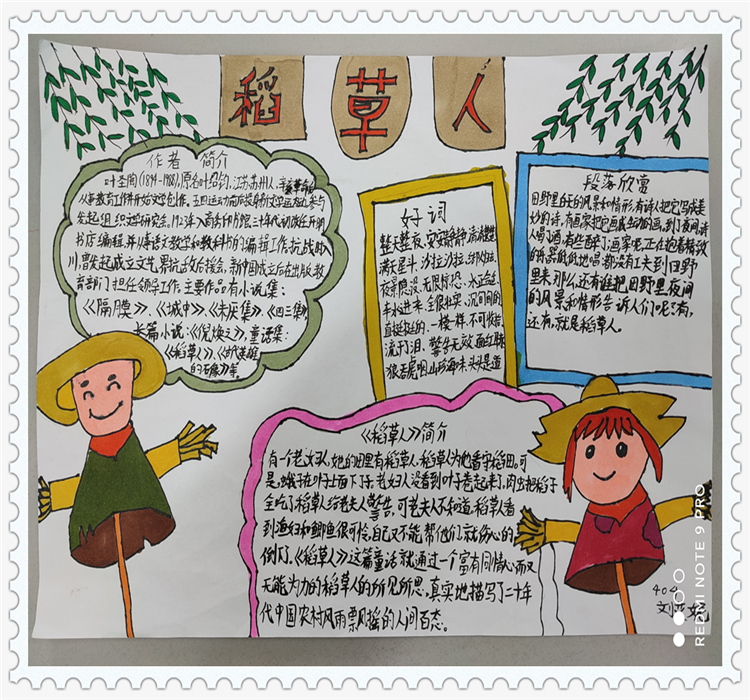 稻草人
作者简介
叶圣陶(1894-1988),原名叶绍钧,江苏苏州人,
从事教育工作并开始文学创作。五四运动前后
发起组织文学研究会。
书店编辑,并从事语文教学和教科书的编辑工作,抗战时
川,曾发起成立文艺界抗敌后援会,新中国成立后在出版、教
育部门担任领导工作。主要作品有小说集:
《隔膜》、《城中》、《未厌集》、《四三集》
长篇小说:《倪焕之》,童话集:
《稻草人》、《古代英雄
的石像》等。
好词
整天整夜、安安静静、清清楚楚
满天星斗、沙拉沙拉、
夜景隐没、无限惊恐、
丰小进来、全很出卖、沉闷闷的
直挺挺的、一模一样、不可收拾
流干了泪、警告无效、面红
狼吞虎咽、山珍海味、头头是道
段落欣赏
田野里白天的风景和情形,有诗人把它写成美
妙的诗,有画家把它画成生动的画。到了夜间,诗
人喝了酒,有些醉了;画家呢,正在抱着精致
的乐器低低地唱:都没有工夫到田野
里来。那么,还有谁把田野里夜间
的风景和情形告诉人们呢?有,
还有,就是稻草人。
《稻草人》简介
有一个老妇人,她的田里有稻草人,稻草人为她看守稻田。可
是,蛾子在叶子上面下了子,老妇人没看到叶子卷起来了,肉虫把稻子
全吃了稻草人给老夫人警告,可老夫人不知道,稻草人看
到渔妇和鲫鱼很可怜,自己又不能帮他们,就伤心的
倒了。《稻草人》这篇童话就通过一个富有同情心而又
无能为力的稻草人的所见所思,真实地描写了二十年
代中国农村风雨飘摇的人间百态。
REDMI NOTE 9 PRO